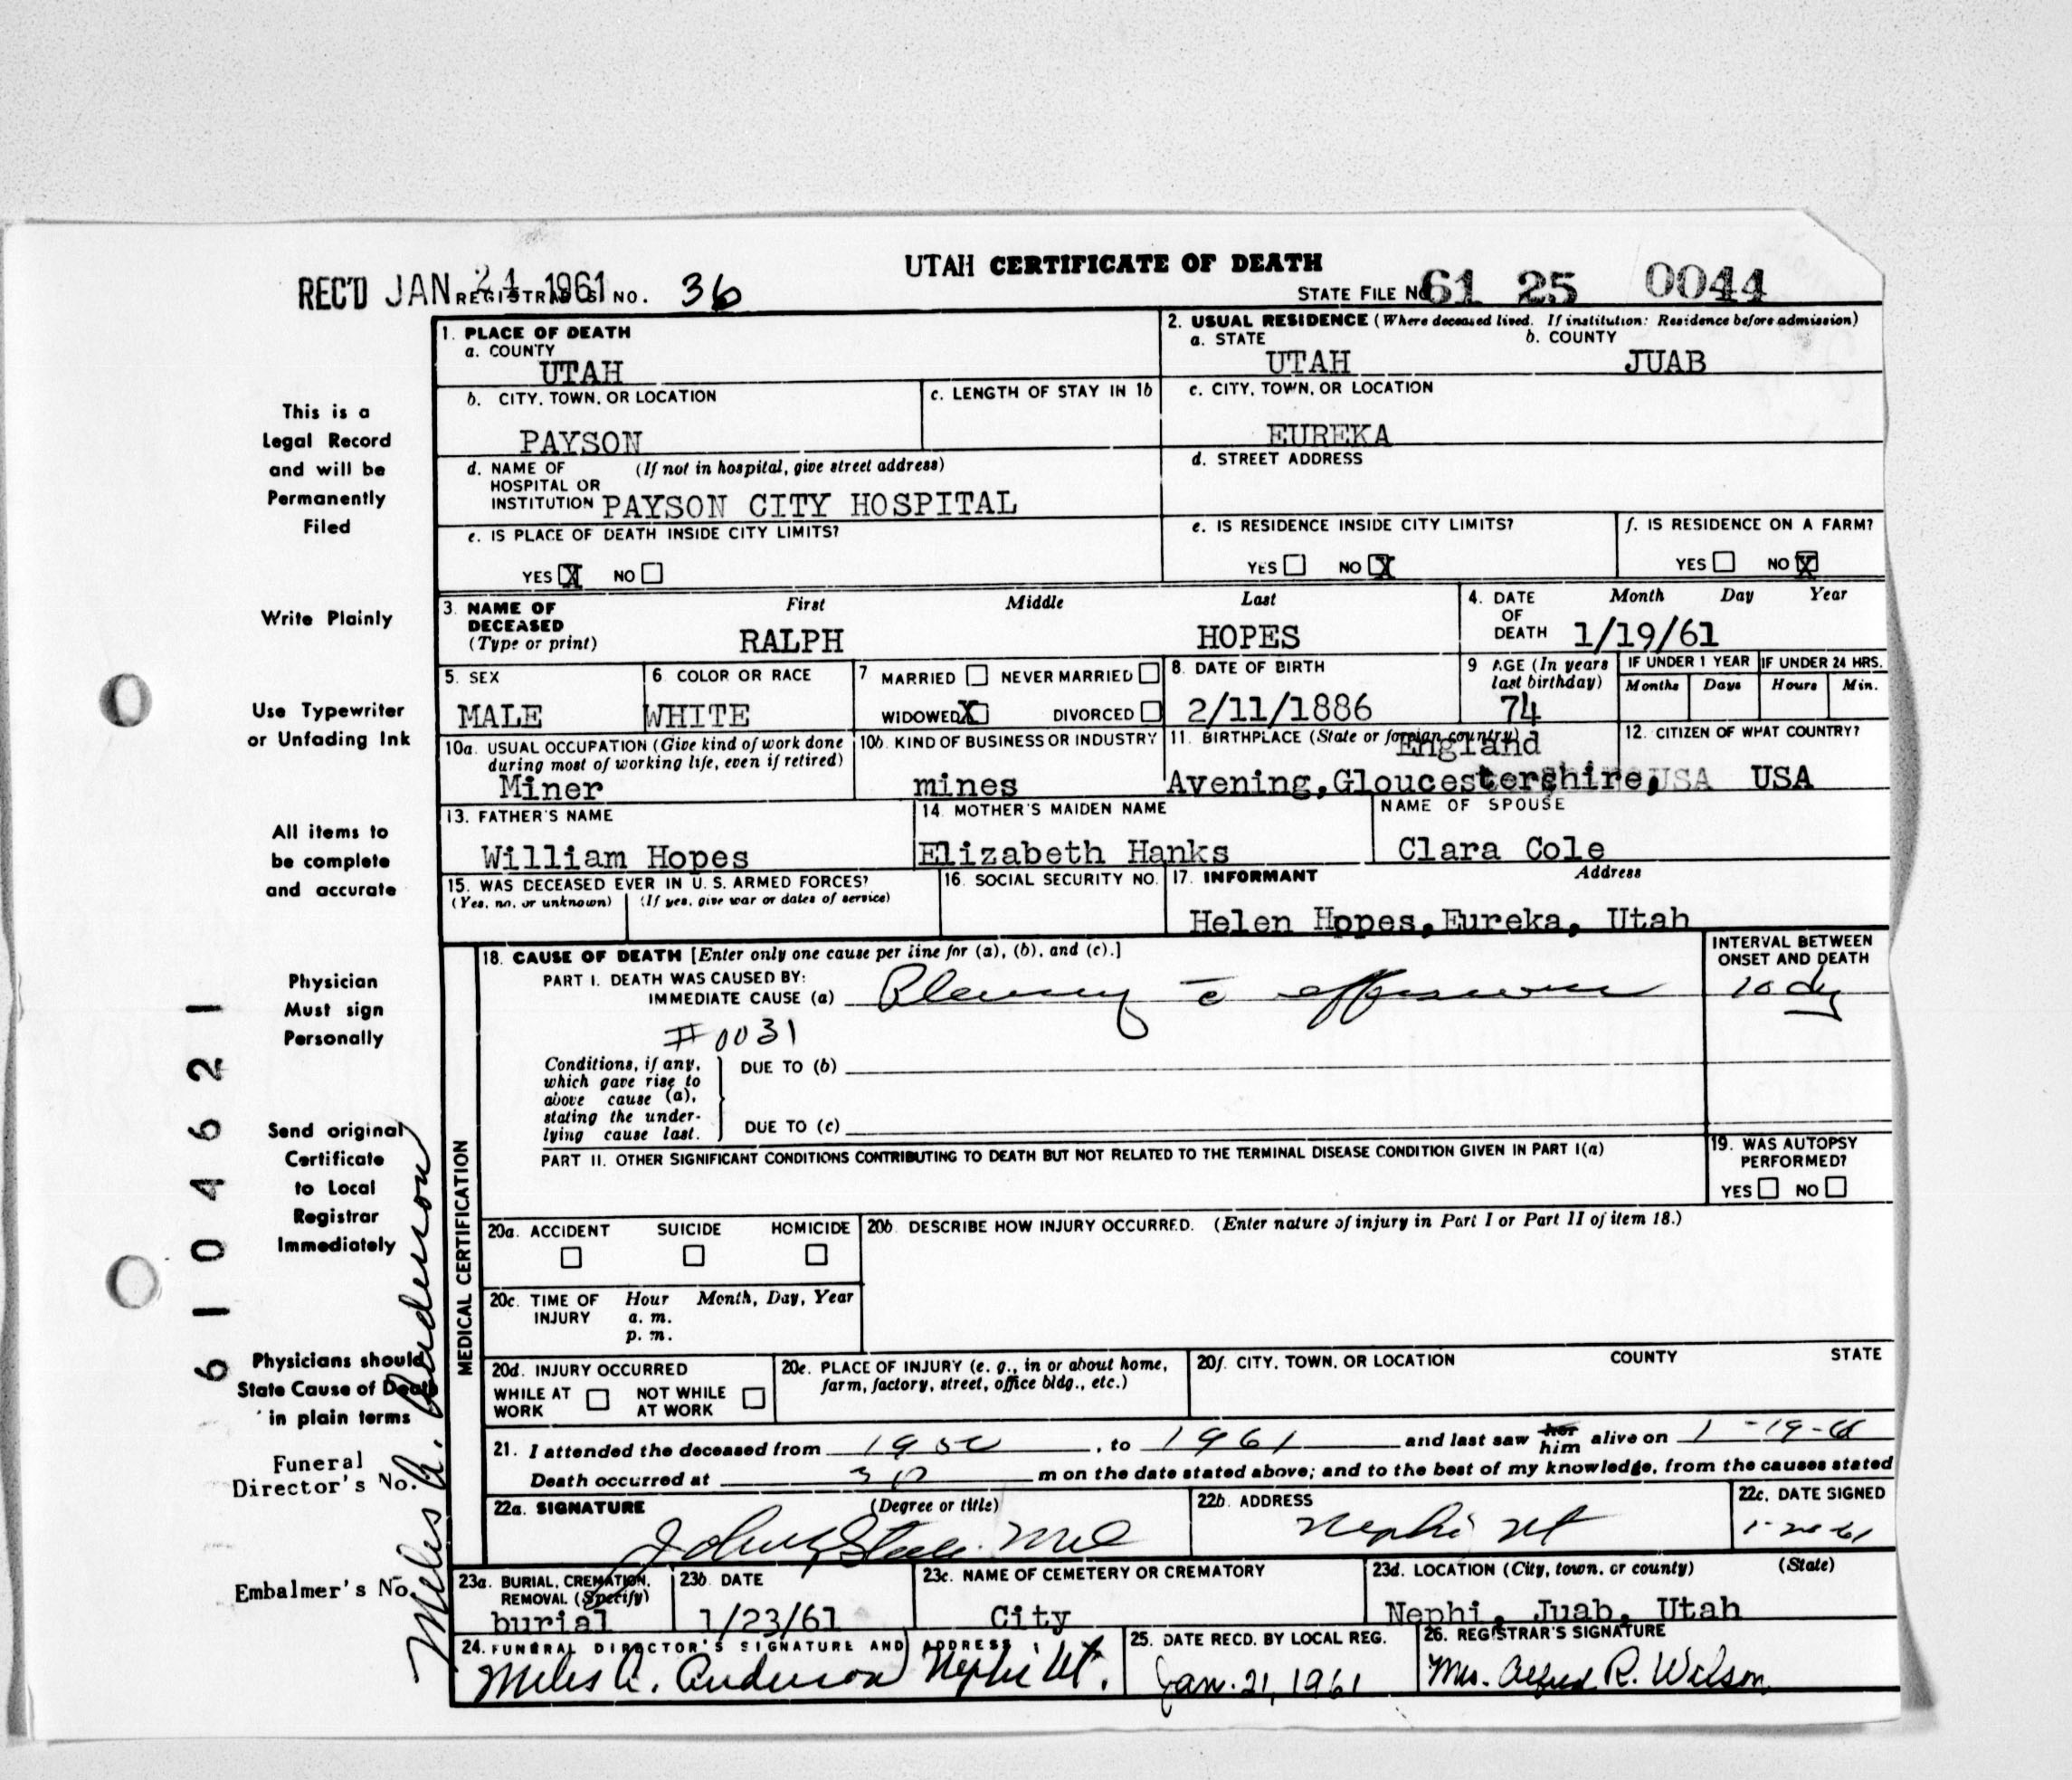 UTAH CERTIFICATE OF DEATH
REC'D JAN 24 1961 REGISTRAR'S NO. 36
STATE FILE NO. 61 25 0044
This is a
Legal Record
and will be
Permanently
Filed
Write Plainly
Use Typewriter
or Unfading Ink
All items to
be complete
and accurate
Physician
Must sign
Personally
Send original
Certificate
to Local
Registrar
Immediately
Physicians should
State Cause of Death
in plain terms
Funeral
Director's No.
Embalmer's No.
Miles A. Anderson
6104621
1. PLACE OF DEATH
a. COUNTY
UTAH
b. CITY, TOWN, OR LOCATION
PAYSON
c. LENGTH OF STAY IN 1b
d. NAME OF (If not in hospital, give street address)
HOSPITAL OR
INSTITUTION PAYSON CITY HOSPITAL
e. IS PLACE OF DEATH INSIDE CITY LIMITS?
YES X NO
2. USUAL RESIDENCE (Where deceased lived. If institution: Residence before admission)
a. STATE b. COUNTY
UTAH JUAB
c. CITY, TOWN, OR LOCATION
EUREKA
d. STREET ADDRESS
e. IS RESIDENCE INSIDE CITY LIMITS?
YES NO X
f. IS RESIDENCE ON A FARM?
YES NO X
3. NAME OF DECEASED (Type or print)
First Middle Last
RALPH HOPES
4. DATE OF DEATH Month Day Year
1/19/61
5. SEX
MALE
6. COLOR OR RACE
WHITE
7 MARRIED NEVER MARRIED
WIDOWED X DIVORCED
8. DATE OF BIRTH
2/11/1886
9 AGE (In years last birthday)
74
IF UNDER 1 YEAR IF UNDER 24 HRS.
Months Days Hours Min.
10a. USUAL OCCUPATION (Give kind of work done
during most of working life, even if retired)
Miner
10b. KIND OF BUSINESS OR INDUSTRY
mines
11. BIRTHPLACE (State or foreign country)
England
Avening, Gloucestershire, USA
12. CITIZEN OF WHAT COUNTRY?
USA
13. FATHER'S NAME
William Hopes
14 MOTHER'S MAIDEN NAME
Elizabeth Hanks
NAME OF SPOUSE
Clara Cole
15. WAS DECEASED EVER IN U. S. ARMED FORCES?
(Yes, no, or unknown) (If yes, give war or dates of service)
16. SOCIAL SECURITY NO.
17. INFORMANT Address
Helen Hopes, Eureka, Utah
MEDICAL CERTIFICATION
18. CAUSE OF DEATH [Enter only one cause per line for (a), (b), and (c).]
INTERVAL BETWEEN
ONSET AND DEATH
PART I. DEATH WAS CAUSED BY:
IMMEDIATE CAUSE (a) Pleurisy c̄ effusion 10 dy
#0031
Conditions, if any,
which gave rise to
above cause (a),
stating the under-
lying cause last.
DUE TO (b)
DUE TO (c)
PART II. OTHER SIGNIFICANT CONDITIONS CONTRIBUTING TO DEATH BUT NOT RELATED TO THE TERMINAL DISEASE CONDITION GIVEN IN PART I(a)
19. WAS AUTOPSY
PERFORMED?
YES NO
20a. ACCIDENT SUICIDE HOMICIDE
20b. DESCRIBE HOW INJURY OCCURRED. (Enter nature of injury in Part I or Part II of item 18.)
20c. TIME OF INJURY Hour Month, Day, Year
a. m.
p. m.
20d. INJURY OCCURRED
WHILE AT WORK NOT WHILE AT WORK
20e. PLACE OF INJURY (e. g., in or about home,
farm, factory, street, office bldg., etc.)
20f. CITY, TOWN, OR LOCATION COUNTY STATE
21. I attended the deceased from 1950, to 1961 and last saw her him alive on 1-19-61
Death occurred at 3 P m on the date stated above; and to the best of my knowledge, from the causes stated
22a. SIGNATURE (Degree or title)
Steele MD
22b. ADDRESS
Nephi Ut
22c. DATE SIGNED
1-20-61
23a. BURIAL, CREMATION,
REMOVAL (Specify)
burial
23b. DATE
1/23/61
23c. NAME OF CEMETERY OR CREMATORY
City
23d. LOCATION (City, town, or county) (State)
Nephi, Juab, Utah
24. FUNERAL DIRECTOR'S SIGNATURE AND ADDRESS
Miles A. Anderson Nephi Ut.
25. DATE RECD. BY LOCAL REG.
Jan. 21, 1961
26. REGISTRAR'S SIGNATURE
Mrs. Alfred R. Wilson